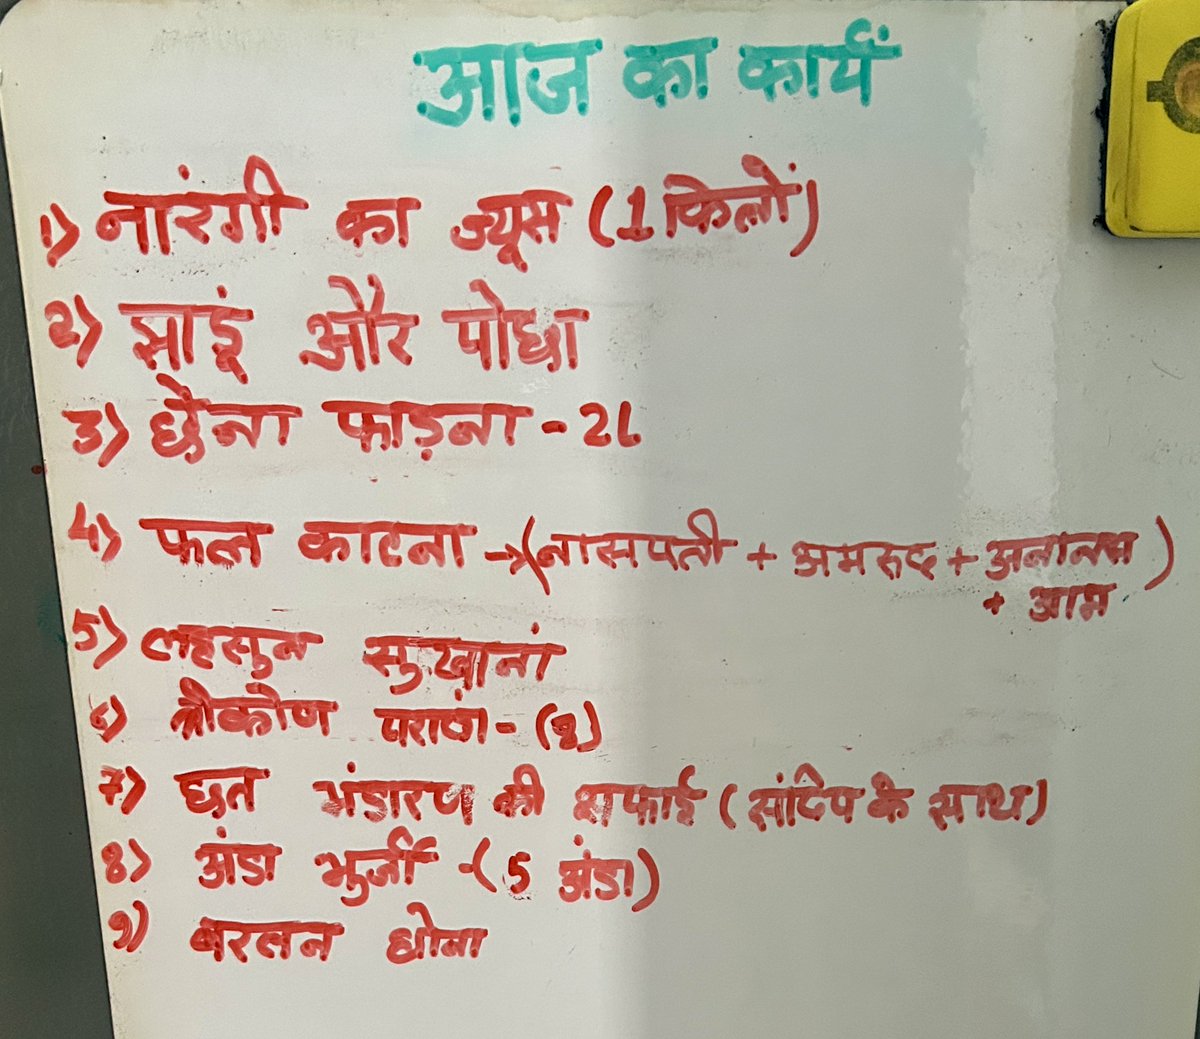 आज का कार्य
1) नारंगी का ज्यूस (1 किलों)
2) झाडूं और पोछा
3) छैना फाड़ना - 2L
4) फल काटना → (नासपती + अमरुद + अनानस)
+ आम
5) लहसुन सुखाना
6) त्रीकोण पराठा -
7) छत भंडारण की सफाई (संदिप के साथ)
8) अंडा भुर्जी - (5 अंडा)
9) बरतन धोना